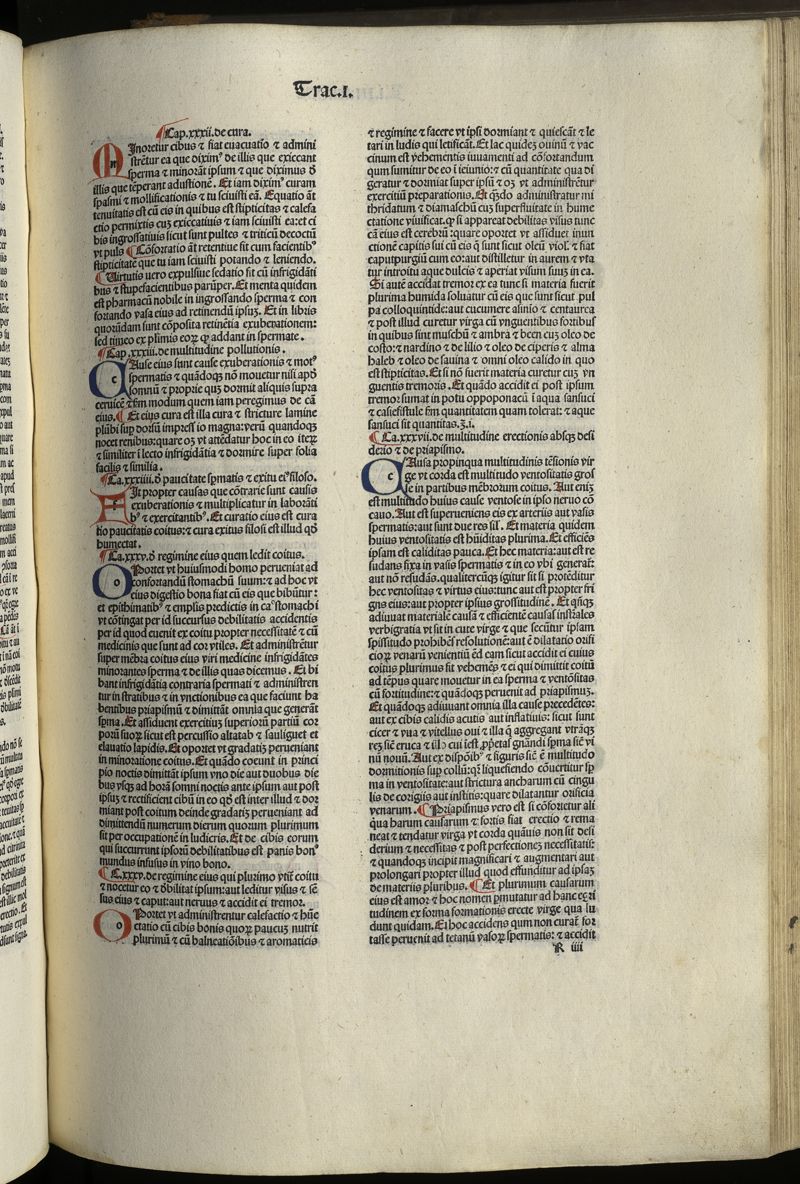 Trac.I.
¶Cap.xxxii.de cura.
MInoretur cibus ⁊ fiat euacuatio ⁊ admini
strētur ea que diximꝰ de illis que exiccant
sperma ⁊ minorāt ipsum ⁊ que diximus ð
illis que tēperant adustionē. Et iam diximꝰ curam
spasmi ⁊ mollificationis ⁊ tu sciuisti eā. Equatio āt
tenuitatis est cū eis in quibus est stipticitas ⁊ calefa
ctio permixtis cuꝫ exiccatiuis ⁊ iam sciuisti ea:et ci
bis ingrossatiuis sicut sunt pultes ⁊ triticū decoctū
vt puls ¶Cōfortatio āt retentiue fit cum facientibꝰ
stipticitatē que tu iam sciuisti potando ⁊ leniendo.
¶Uirtutis uero expulsiue sedatio fit cū infrigidāti
bus ⁊ stupefacientibus parūper. Et menta quidem
est pharmacū nobile in ingrossando sperma ⁊ con
fortando vasa eius ad retinendū ipsuꝫ. Et in libris
quorūdam sunt cōposita retinētia exuberationem:
sed timeo ex plimis eoꝝ ꝙ addant in spermate.
¶Cap.xxxiii.de multitudine pollutionis.
CAuse eius sunt cause exuberationis ⁊ motꝰ
spermatis ⁊ quādoqꝫ nō mouetur nisi apð
somnū ⁊ proprie quꝫ dormit aliquis supra
ceruicē ⁊ ẜm modum quem iam peregimus de cā
eius.¶Et eius cura est illa cura ⁊ stricture lamine
plūbi sup dorsū impressio magna:verū quandoqꝫ
nocet renibus:quare oꝫ vt attēdatur hoc in eo iteꝝ
⁊ similiter i lecto infrigidātia ⁊ dormire super folia
facilis ⁊ similia.
¶Ca.xxxiiii.ð paucitate spmatis ⁊ exitu eiꝰ filoso.
FIt propter causas que cōtrarie sunt causis
exuberationis ⁊ multiplicatur in laborāti
bꝰ ⁊ exercitantibꝰ. Et curatio eius est cura
tio paucitatis coitus:⁊ cura exitus filosi est illud qð
humectat.
¶Ca.xxxv.ð regimine eius quem ledit coitus.
OPortet vt huiusmodi homo perueniat ad
confortandū stomachū suum:⁊ ad hoc vt
eius digestio bona fiat cū eis que bibūtur:
et epithimatibꝰ ⁊ emplīs predictis in caº stomachi
vt cōtingat per id succursus debilitatis accidentis
per id quod euenit ex coitu propter necessitatē ⁊ cū
medicinis que sunt ad cor vtiles. Et administrētur
super mēbra coitus eius viri medicine infrigidātes
minorantes sperma ⁊ de illis quas dicemus. Et bi
bant infrigidātia contraria spermati ⁊ administren
tur in stratibus ⁊ in vnctionibus ea que faciunt ha
bentibus priapismū ⁊ dimittāt omnia que generāt
spma. Et assiduent exercitiuꝫ superiorū partiū cor
porū suoꝝ sicut est percussio altabab ⁊ sauliguet et
elauatio lapidis. Et oportet vt gradatiꝫ perueniant
in minoratione coitus. Et quādo coeunt in princi
pio noctis dimittāt ipsum vno die aut duobus die
bus vsqꝫ ad horā somni noctis ante ipsum aut post
ipsuꝫ ⁊ rectificient cibū in eo qð est inter illud ⁊ dor
miant post coitum deinde gradatiꝫ perueniant ad
dimittendū numerum dierum quorum plurimum
sit per occupationē in ludicris. Et de cibis eorum
qui succurrunt ipsorū debilitatibus est panis bonꝰ
mundus infusus in vino bono.
¶Ca.xxxv.de regimine eius qui plurimo vtit̄ coitu
⁊ nocetur eo ⁊ ðbilitat ipsum:aut leditur visus ⁊ sē
sus eius ⁊ caput:aut neruus ⁊ accidit ei tremor.
OPortet vt administrentur calefactio ⁊ hūe
ctatio cū cibis bonis quoꝝ paucuꝫ nutrit
plurimū ⁊ cū balneatiōibus ⁊ aromaticis
⁊ regimine ⁊ facere vt ipsi dormiant ⁊ quiescāt ⁊ le
tari in ludis qui letificāt. Et lac quideꝫ ouinū ⁊ vac
cinum est vehementis iuuamenti ad cōfortandum
qum sumitur de eo i ieiunio:⁊ cū quantitate qua di
geratur ⁊ dormiat super ipsū ⁊ oꝫ vt administrētur
exercitiū preparationis. Et qꝫdo administratur mi
thridatum ⁊ diamaschū cuꝫ superfluitate in hume
ctatione viuificat. ꝙ si appareat debilitas visus tunc
cā eius est cerebrū:quare oportet vt assiduet inun
ctionē capitis sui cū eis q̄ sunt sicut oleū violꝭ ⁊ fiat
caputpurgiū cum eo:aut distilletur in aurem ⁊ vta
tur introitu aque dulcis ⁊ aperiat visum suuꝫ in ea.
Si autē accidat tremor ex ea tunc si materia fuerit
plurima humida soluatur cū eis que sunt sicut pul
pa colloquintide:aut cucumere asinio ⁊ centaurea
⁊ post illud curetur virga cū vnguentibus fortibus
in quibus sint muschū ⁊ ambra ⁊ been cuꝫ oleo de
costo:⁊ nardino ⁊ de lilio ⁊ oleo de ciperis ⁊ alma
haleb ⁊ oleo de sauina ⁊ omni oleo calido in quo
est stipticitas. Et si nō fuerit materia curetur cuꝫ vn
guentis tremoris. Et quādo accidit ei post ipsum
tremor:sumat in potu oppoponacū i aqua sansuci
⁊ casiefistule ẜm quantitatem quam tolerat:⁊ aque
sansuci sit quantitas.ʒ.i.
¶Ca.xxxvii.de multitudine erectionis absqꝫ desi
derio ⁊ de priapismo.
CAusa propinqua multitudinis tēsionis vir
ge vt corda est multitudo ventositatis gros
se in partibus mēbrorum coitus. Aut enim
est multitudo huius cause ventose in ipso neruo cō
cauo. Aut est superueniens eis ex arteriis aut vasis
spermatis:aut sunt due res sil. Et materia quidem
huius ventositatis est hūiditas plurima. Et efficiēs
ipsam est caliditas pauca. Et hec materia:aut est re
sudans fixa in vasis spermatis ⁊ in eo vbi generat̄:
aut nō resudās.qualitercūqꝫ igitur sit si protēditur
hec ventositas ⁊ virtus eius:tunc aut est propter fri
gus eius:aut propter ipsius grossitudinē. Et qñqꝫ
adiuuat materialē causā ⁊ efficientē causas instrūales
verbigratia vt sit in cute virge ⁊ que sequūtur ipsam
spissitudo prohibēs resolutionē:aut ē dilatatio orifi
cioꝝ venarū venientiū ēd eam sicut accidit ei cuius
coitus plurimus fit vehemēs ⁊ ei qui dimittit coitū
ad tēpus quare mouetur in ea sperma ⁊ ventositas
cū fortitudine:⁊ quādoqꝫ peruenit ad priapismuꝫ.
Et quādoqꝫ adiuuant omnia illa cause precedētes:
aut ex cibis calidis acutis aut inflatiuis: sicut sunt
cicer ⁊ vua ⁊ vitellus oui ⁊ illa q̄ aggregant vtrāqꝫ
reꝫ sic̄ eruca ⁊ illo cui īest ꝓprietas gñandi spma sic̄ vi
nū nouū. Aut ex dispōibꝰ ⁊ figuris sic̄ ē multitudo
dormitionis sup collū:qꝛ liquefiendo cōuertitur sp
ma in ventositatē:aut strictura ancharum cū cingu
lis de corigiis aut institis:quare dilatantur orificia
venarum.¶Priapismus vero est si cōfortetur ali
qua harum causarum ⁊ fortis fiat erectio ⁊ rema
neat ⁊ tendatur virga vt corda quāuis non sit desi
derium ⁊ necessitas ⁊ post perfectionez necessitatis:
⁊ quandoqꝫ incipit magnificari ⁊ augmentari aut
prolongari propter illud quod effunditur ad ipsaꝫ
de materiis pluribus.¶Et plurimum causarum
eius est amor ⁊ hoc nomen pmutatur ad hanc egri
tudinem ex forma formationis erecte virge qua lu
dunt quidam. Et hoc accidens qum non curat̄ for
tasse peruenit ad tetanū vasoꝝ spermatis: ⁊ accidit
R iiii